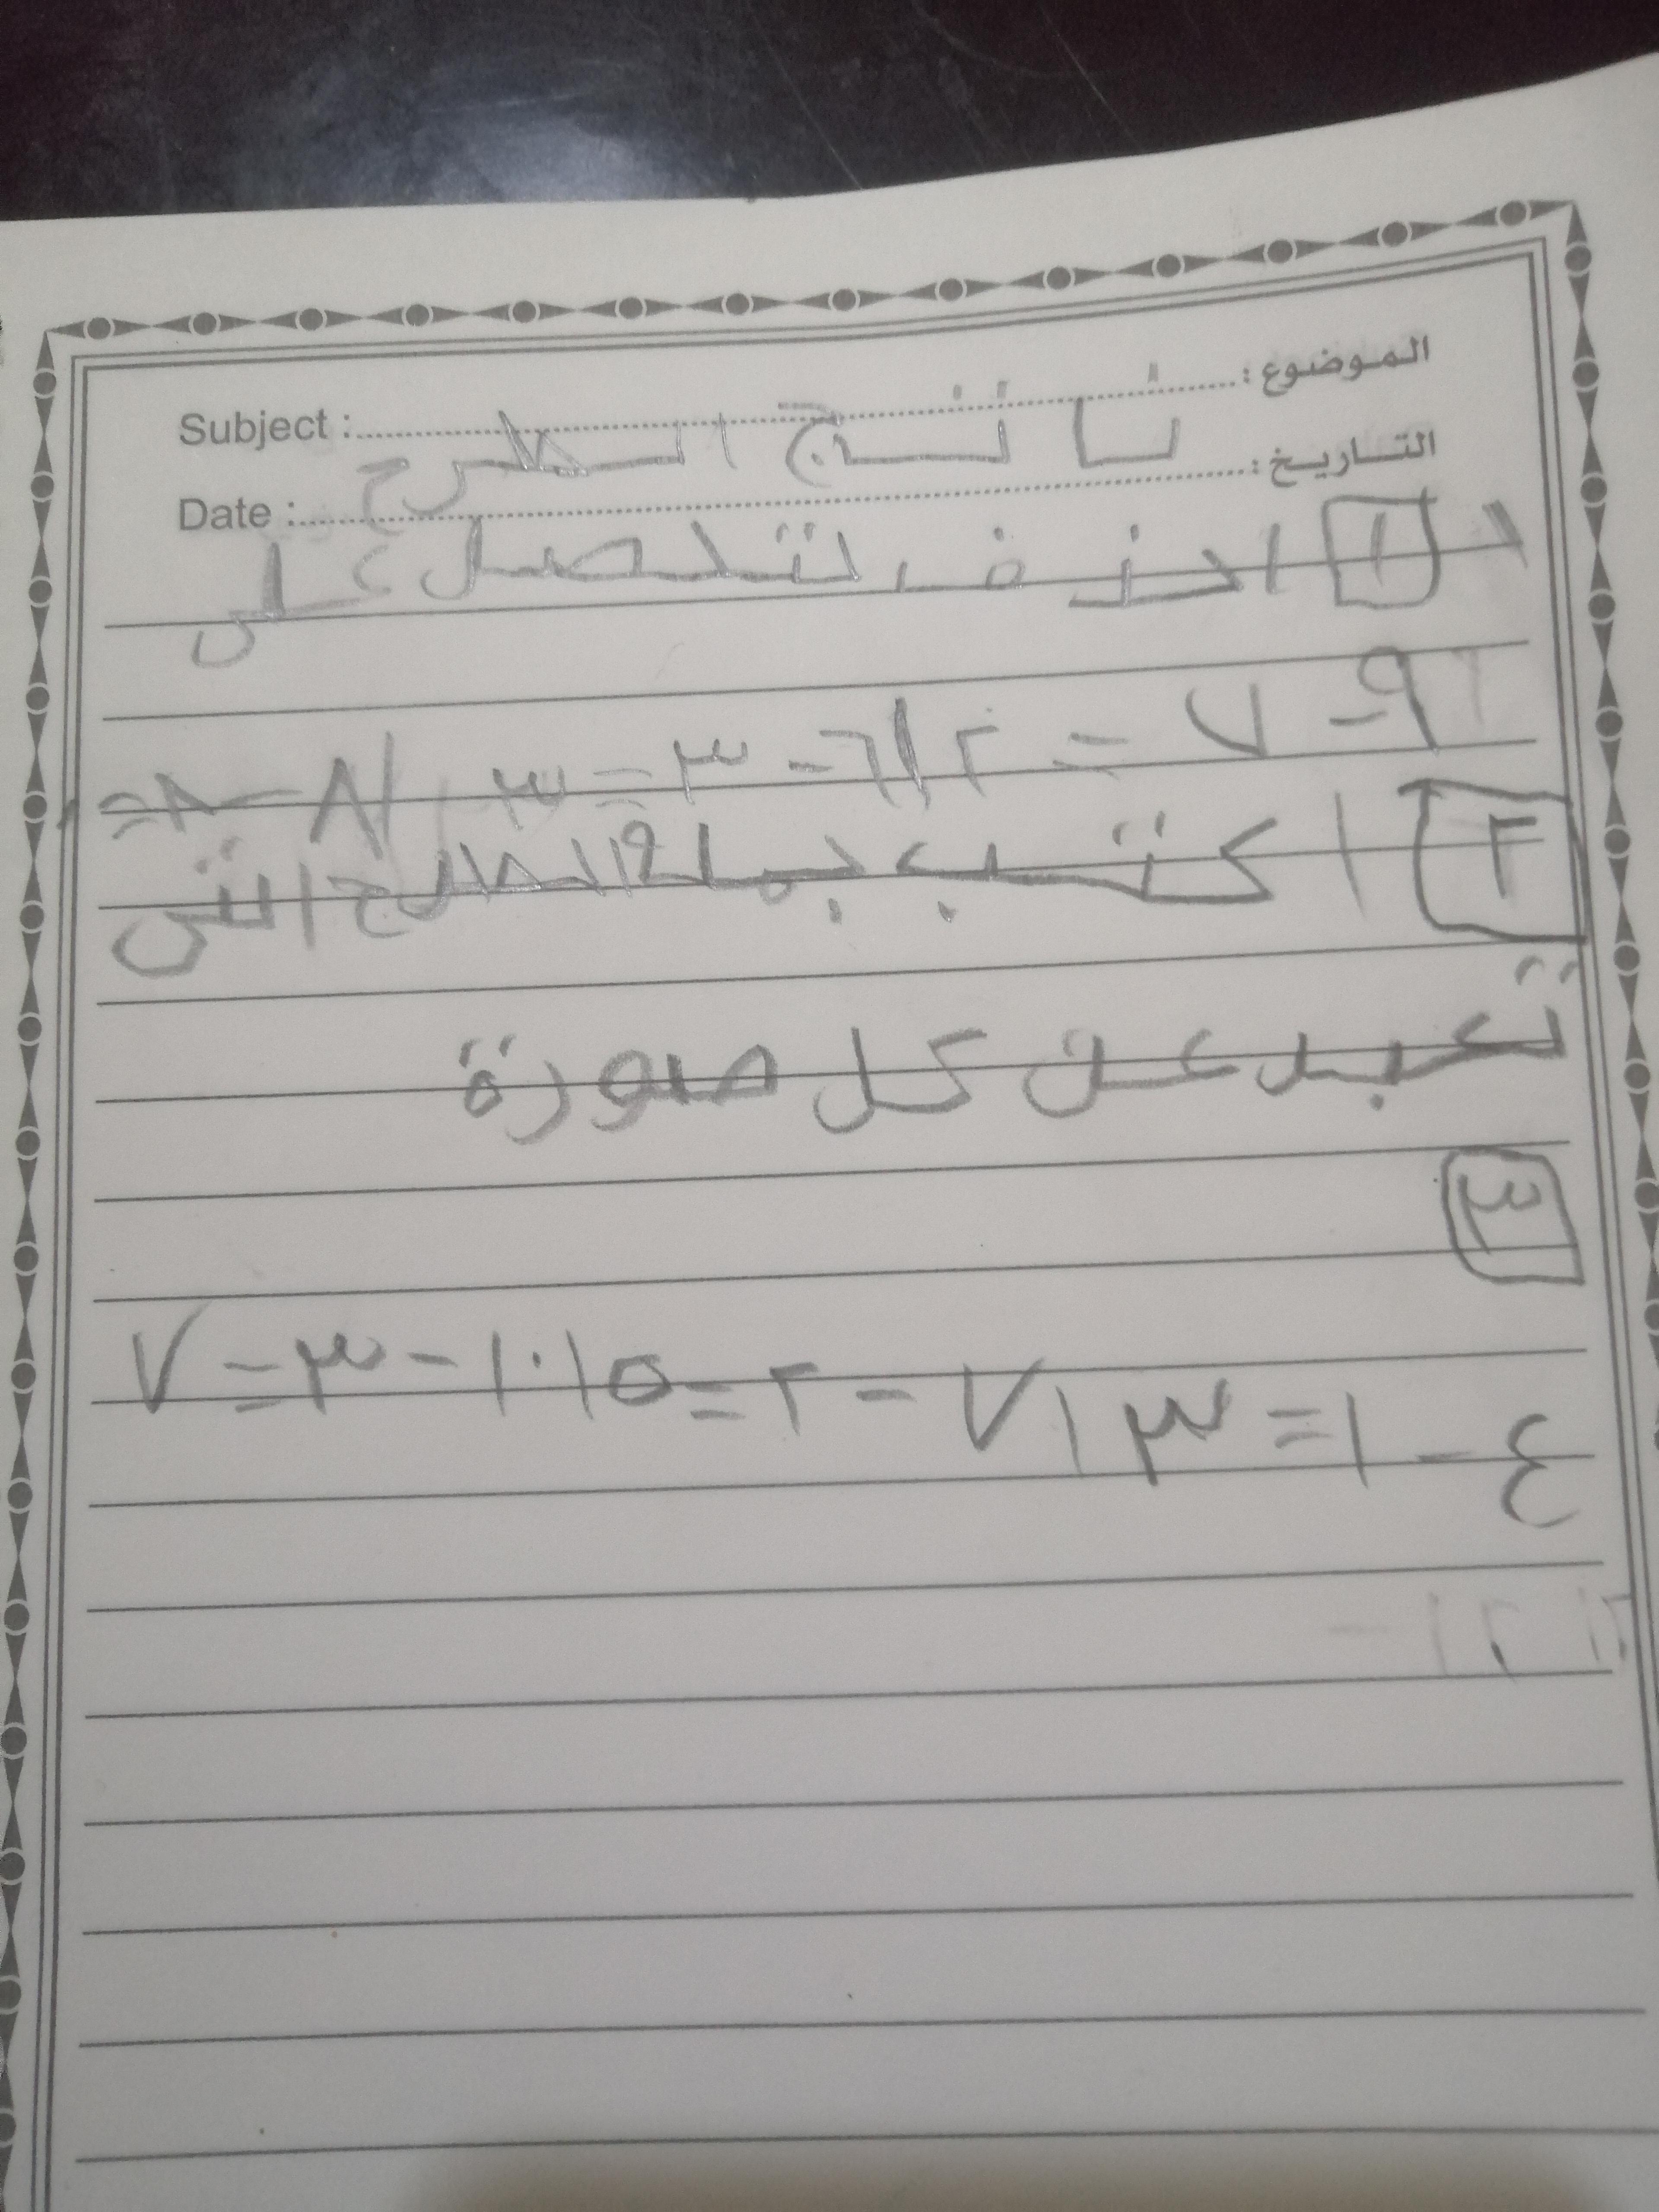 الموضوع : ناتج الطرح Subject :
التاريخ : Date :
١ احذف لتحصل على
٩ - ٧ = ٢ / ٦ - ٣ = ٣ / ٨ - ٨ =
٢ اكتب جملة الطرح التي
تعبر عن كل صورة
٣
٤ - ١ = ٣ / ٧ - ٢ = ٥ / ١٠ - ٣ = ٧